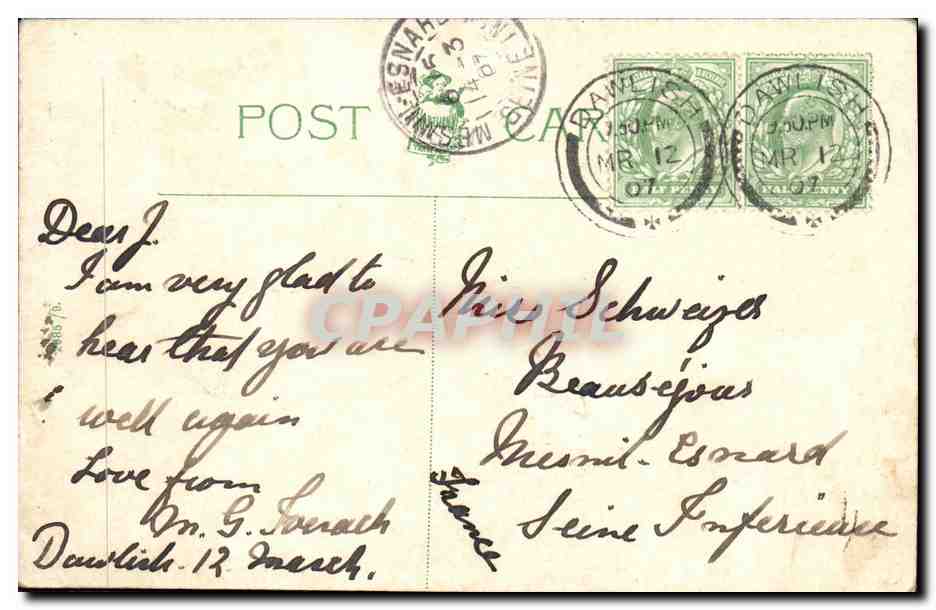 POST CARD
DAWLISH
9.50.PM
MR 12
07
DAWLISH
9.50.PM
MR 12
07
HALF PENNY
HALF PENNY
Dear J.
I am very glad to
hear that you are
well again
Love from
M. G.
Dawlish. 12 March.
Miss Schweizer
Beauséjour
Mesnil-Esnard
Seine Inférieure
France
CPAPHIL